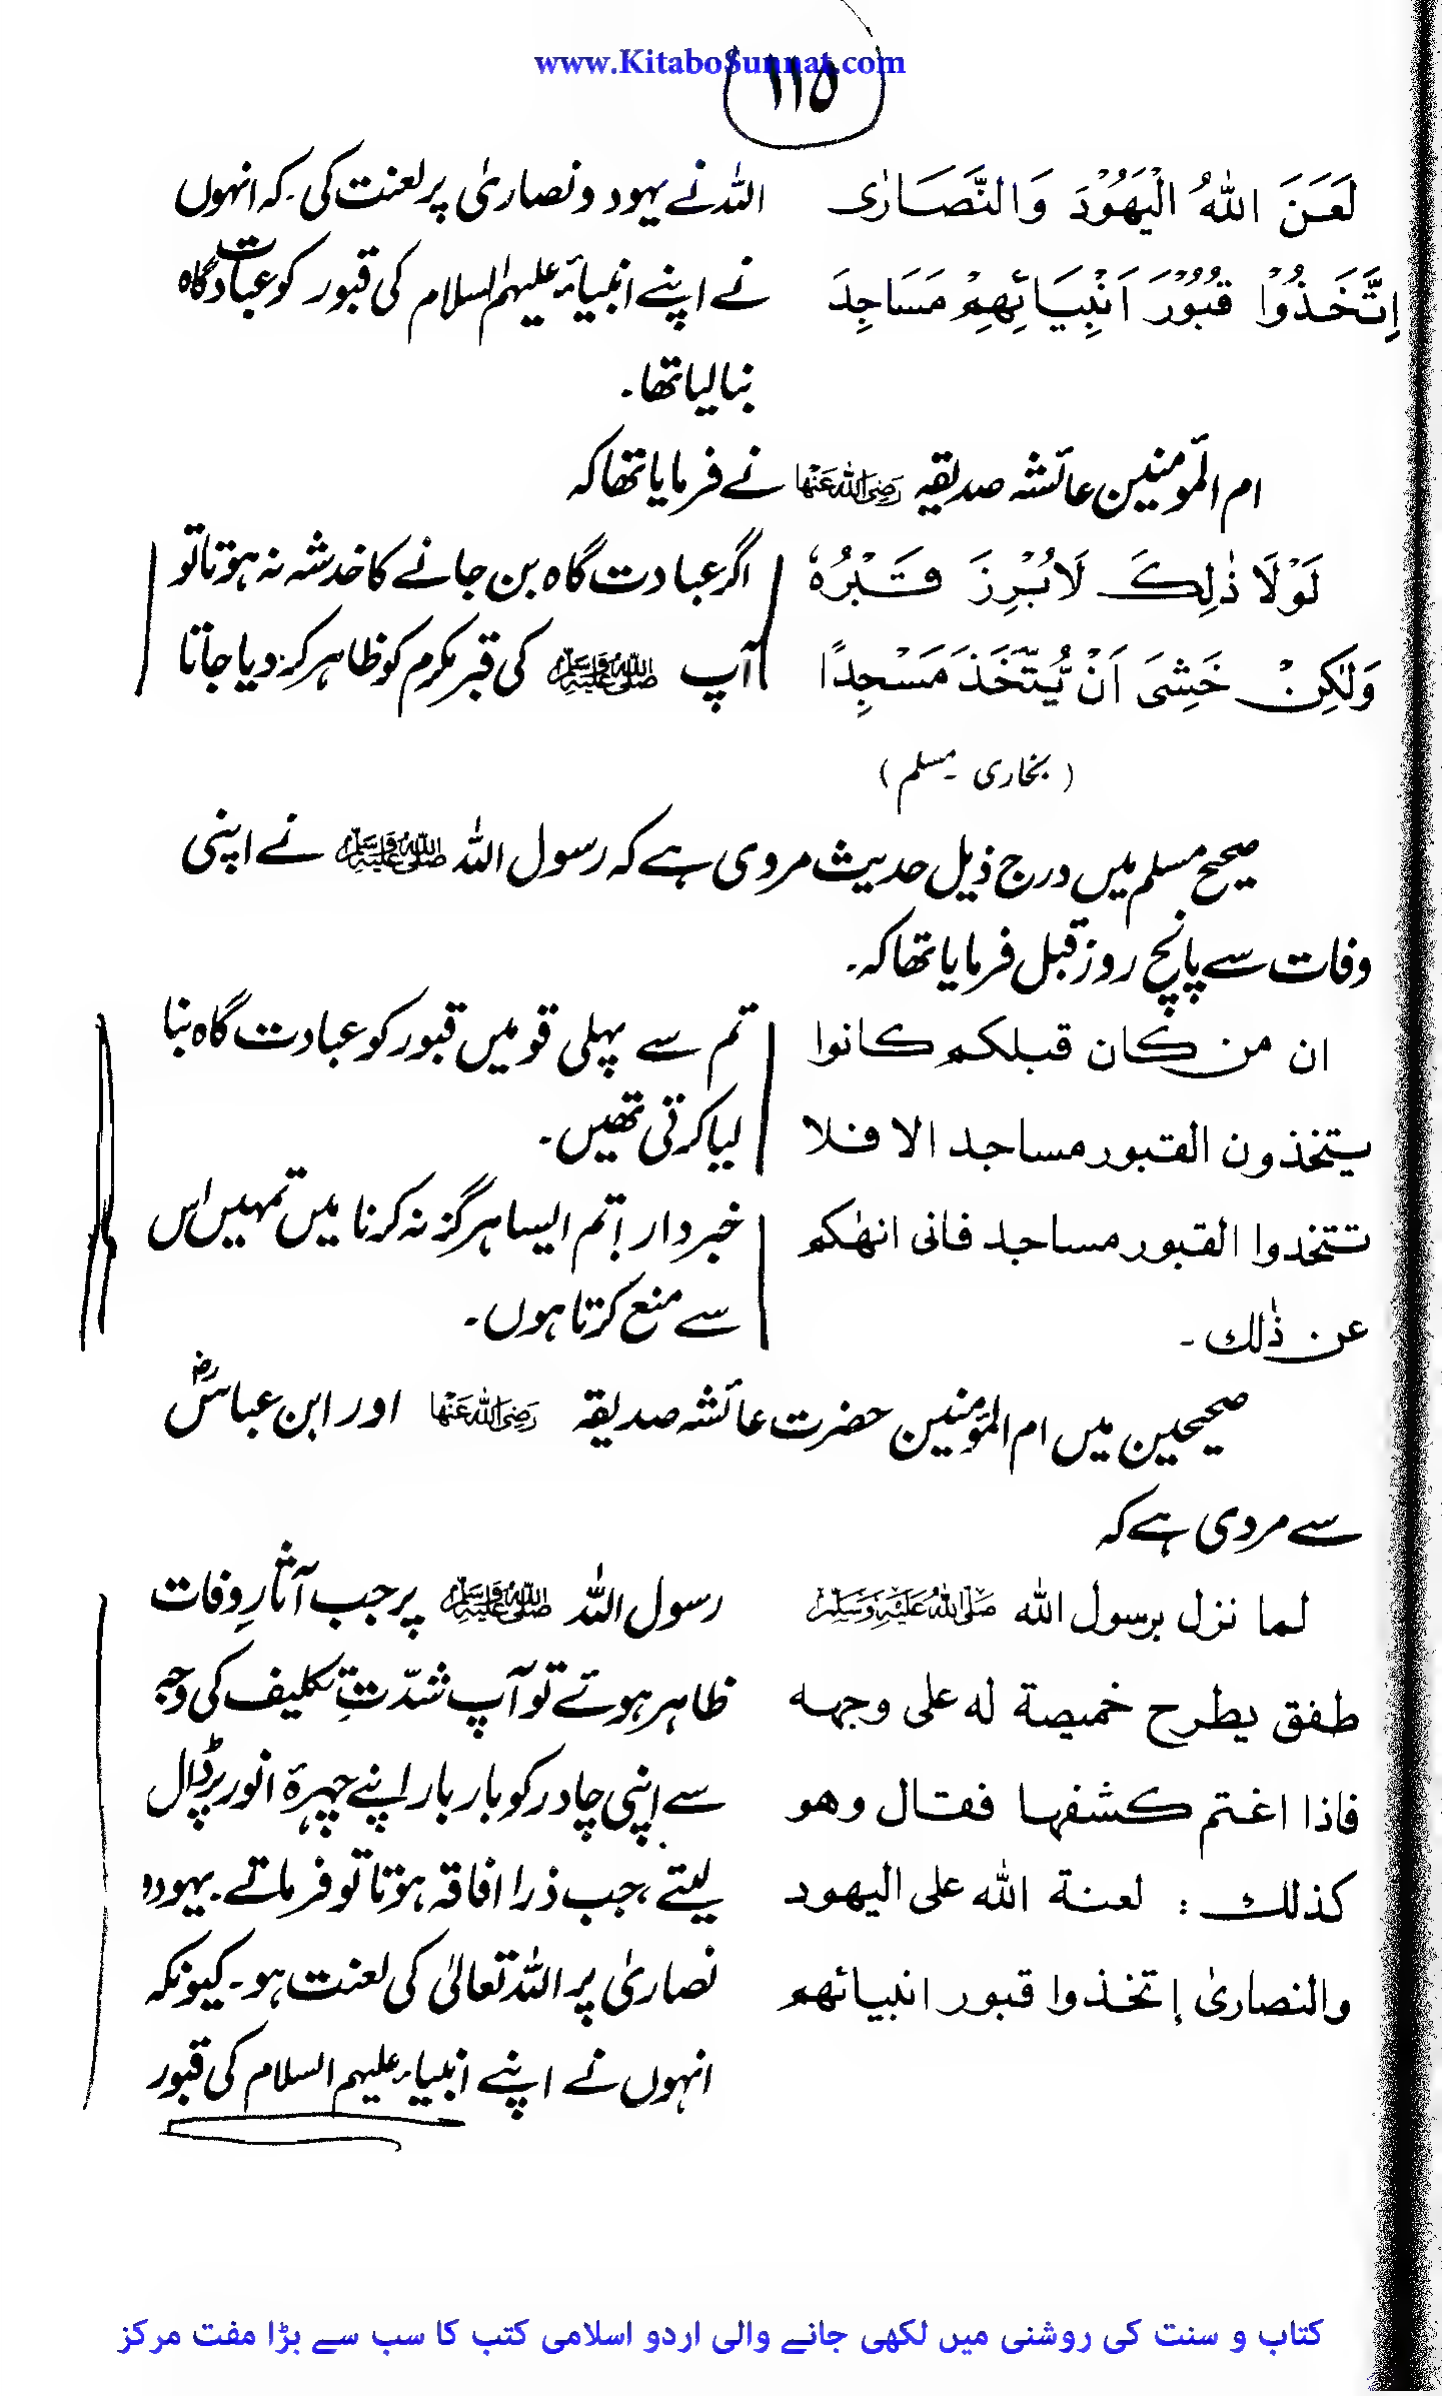 www.KitaboSunnat.com
۱۱۵
لَعَنَ اللّٰهُ الْيَهُوْدَ وَالنَّصَارٰى
اِتَّخَذُوْا قُبُوْرَ اَنْبِيَائِهِمْ مَسَاجِدَ
اللہ نے یہود و نصاریٰ پر لعنت کی۔ کہ انہوں
نے اپنے انبیاء علیہم السلام کی قبور کو عبادت گاہ
بنا لیا تھا۔
ام المؤمنین عائشہ صدیقہ رضی اللہ عنہا نے فرمایا تھا کہ
لَوْلَا ذٰلِكَ لَاُبْرِزَ قَبْرُهٗ
وَلٰكِنْ خَشِىَ اَنْ يُّتَّخَذَ مَسْجِدًا
اگر عبادت گاہ بن جانے کا خدشہ نہ ہوتا تو
آپ ﷺ کی قبر مکرم کو ظاہر کر دیا جاتا
(بخاری ۔ مسلم)
صحیح مسلم میں درج ذیل حدیث مروی ہے کہ رسول اللہ ﷺ نے اپنی
وفات سے پانچ روز قبل فرمایا تھا کہ۔
ان من كان قبلكم كانوا
يتخذون القبور مساجد الا فلا
تتخذوا القبور مساجد فانى انهٰكم
عن ذٰلك ۔
تم سے پہلی قومیں قبور کو عبادت گاہ بنا
لیا کرتی تھیں۔
خبردار! تم ایسا ہرگز نہ کرنا میں تمہیں اس
سے منع کرتا ہوں۔
صحیحین میں ام المؤمنین حضرت عائشہ صدیقہ رضی اللہ عنہا اور ابن عباسؓ
سے مروی ہے کہ
لما نزل برسول الله ﷺ
طفق يطرح خميصة له على وجهه
فاذا اغتم كشفها فقال وهو
كذلك : لعنة الله على اليهود
والنصارىٰ إتخذوا قبور انبيائهم
رسول اللہ ﷺ پر جب آثارِ وفات
ظاہر ہوئے تو آپ شدّتِ تکلیف کی وجہ
سے اپنی چادر کو بار بار اپنے چہرۂ انور پر ڈال
لیتے، جب ذرا افاقہ ہوتا تو فرماتے۔ یہود و
نصاریٰ پر اللہ تعالیٰ کی لعنت ہو۔ کیونکہ
انہوں نے اپنے انبیاء علیہم السلام کی قبور
کتاب و سنت کی روشنی میں لکھی جانے والی اردو اسلامی کتب کا سب سے بڑا مفت مرکز